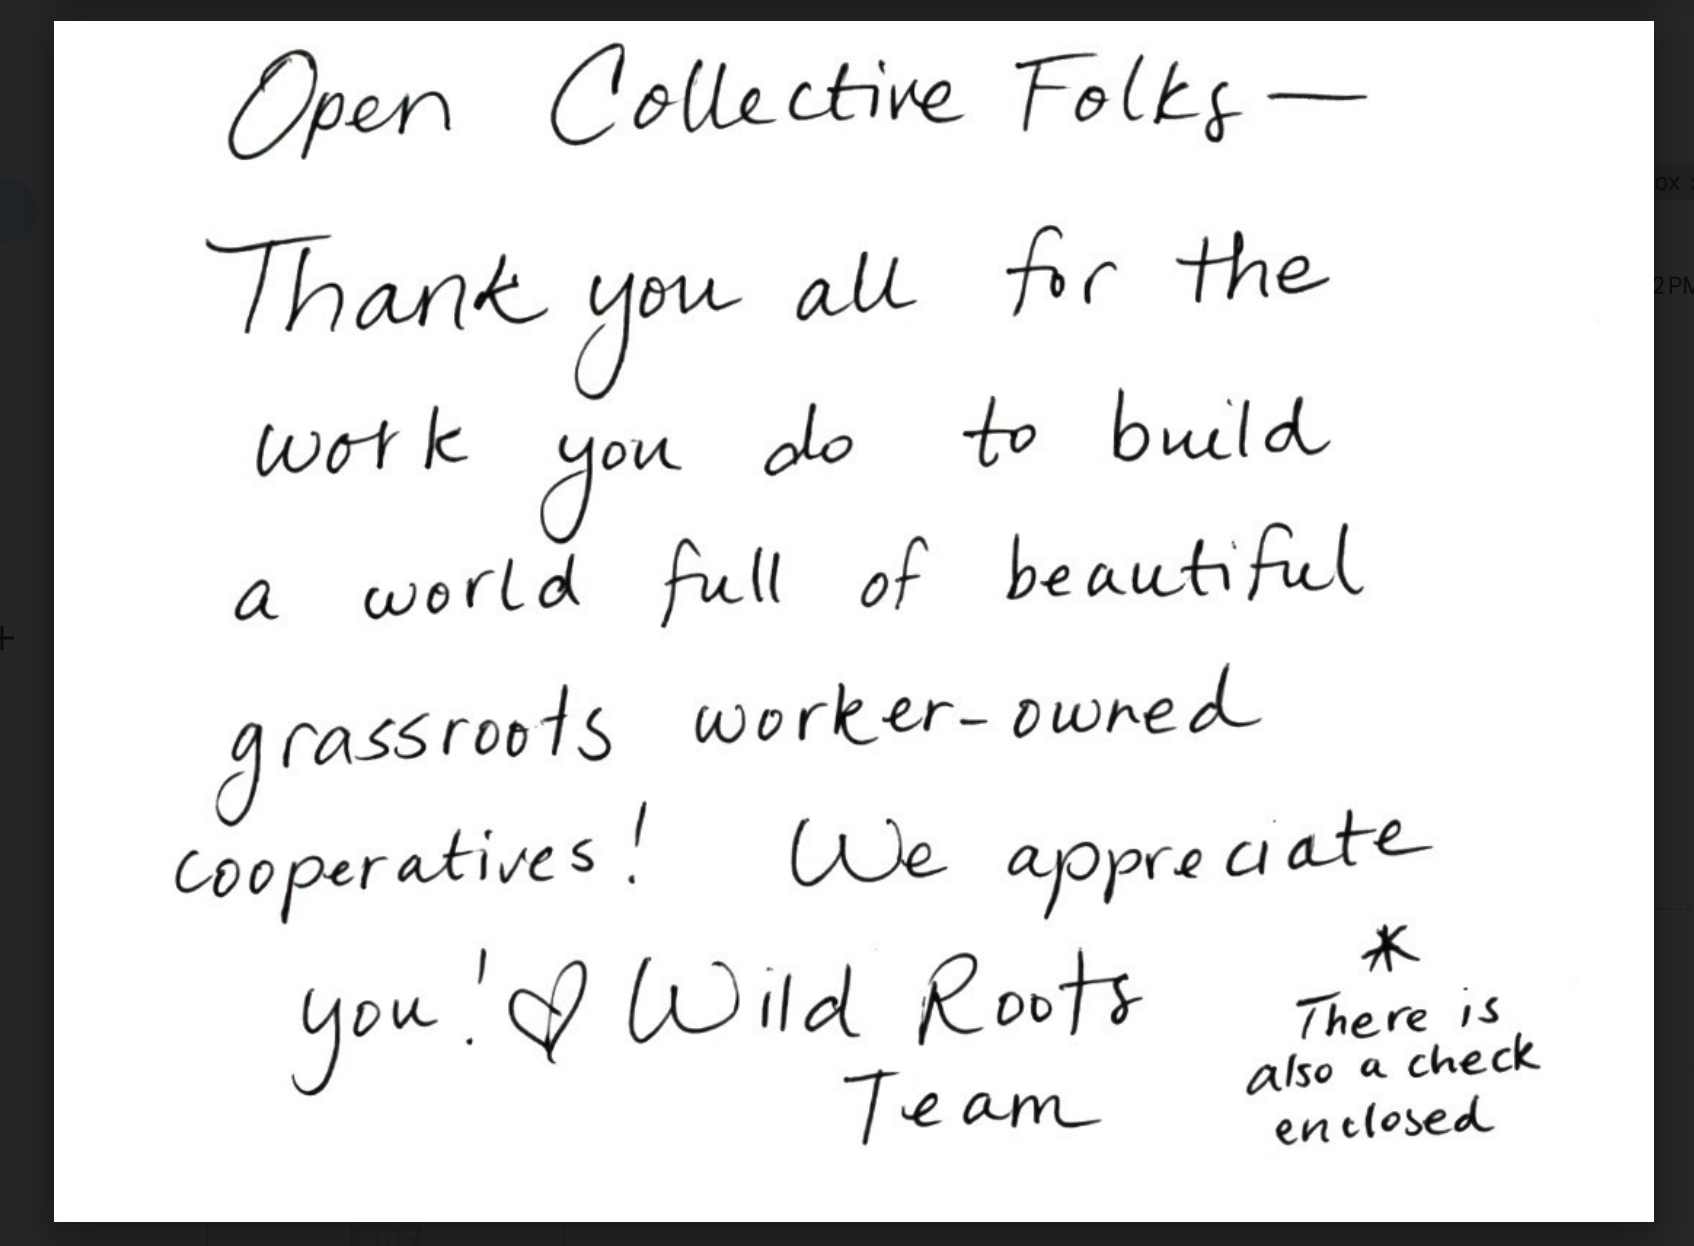 Open Collective Folks—
Thank you all for the
work you do to build
a world full of beautiful
grassroots worker-owned
cooperatives! We appreciate
you! ♡ Wild Roots
Team
*
There is
also a check
enclosed